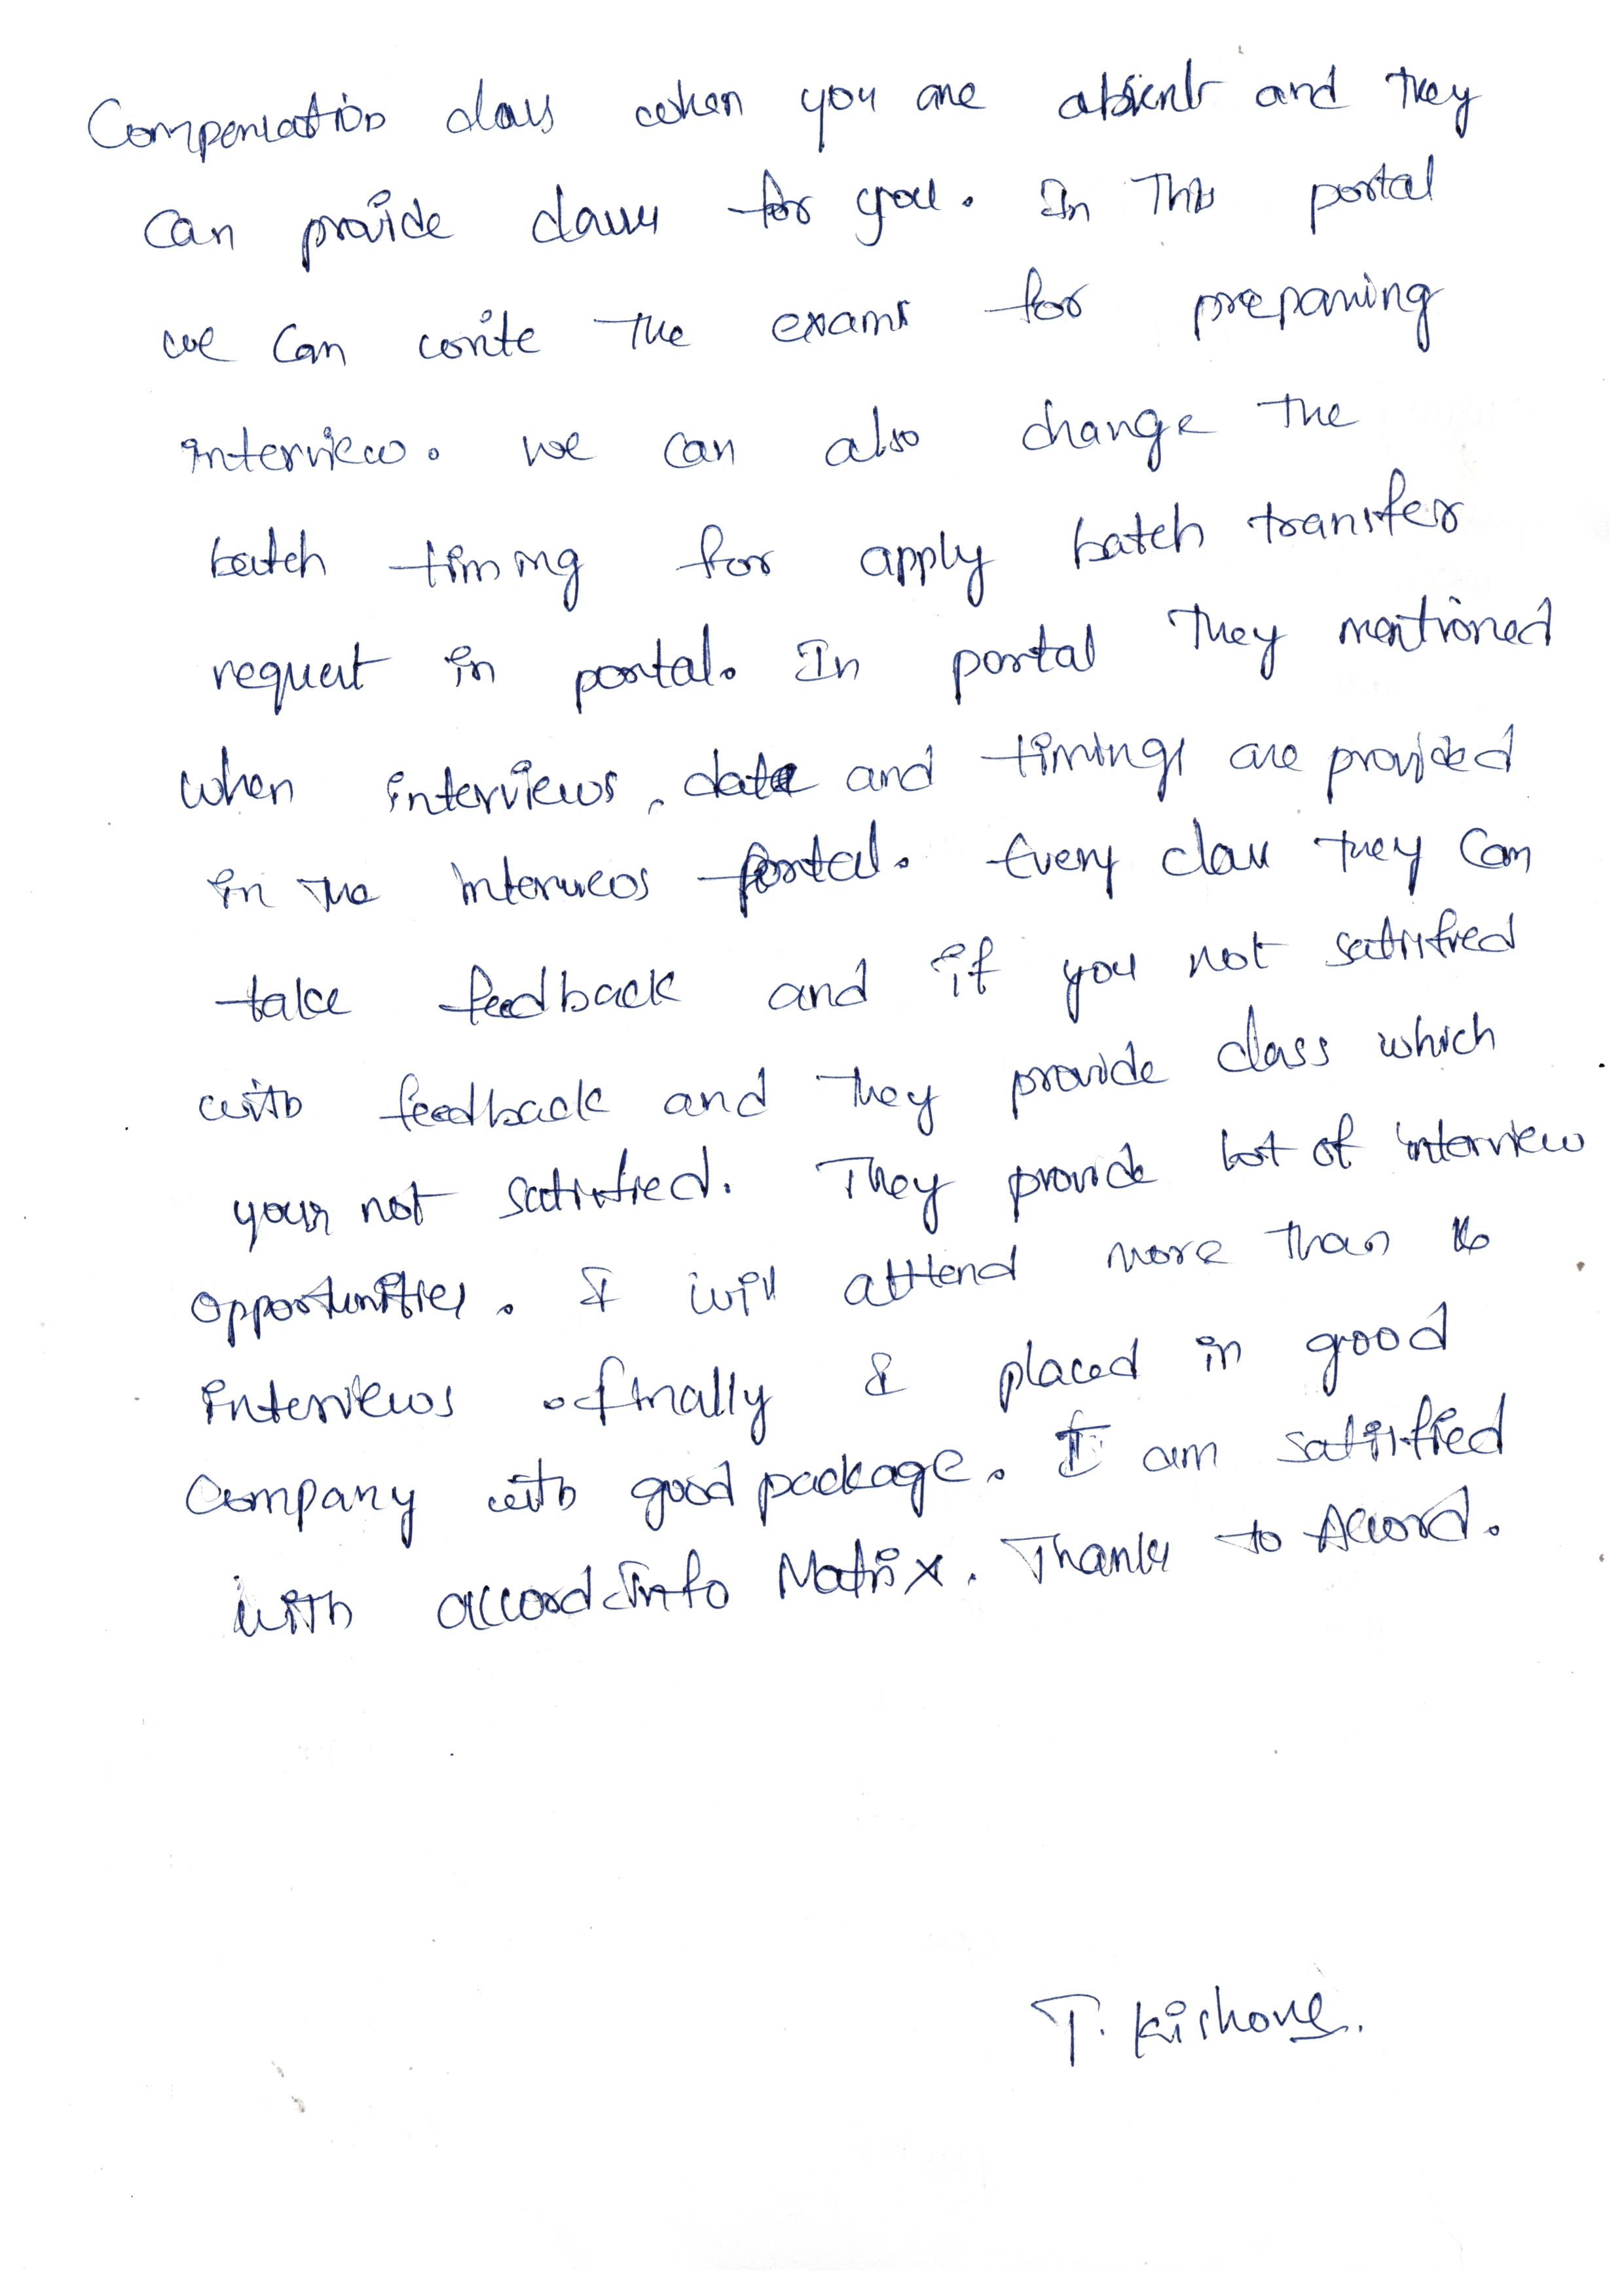 Compensation class when you are absent and they
can provide class for you. In this portal
we can write the exams for preparing
interview. we can also change the
batch timing for apply batch transfer
request in portal. In portal they mentioned
when interviews, date and timings are provided
in the interviews portal. Every class they can
take feedback and if you not satisfied
with feedback and they provide class which
your not satisfied. They provide lot of interview
opportunities. I will attend more than
interviews. finally I placed in good
company with good package. I am satisfied
with accord info Matrix. Thanks to Accord.
T. Kishore.